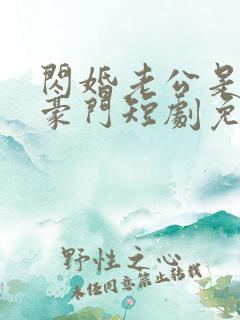 閃婚老公是
豪門短劇免
野性之心
未经同意禁止转载